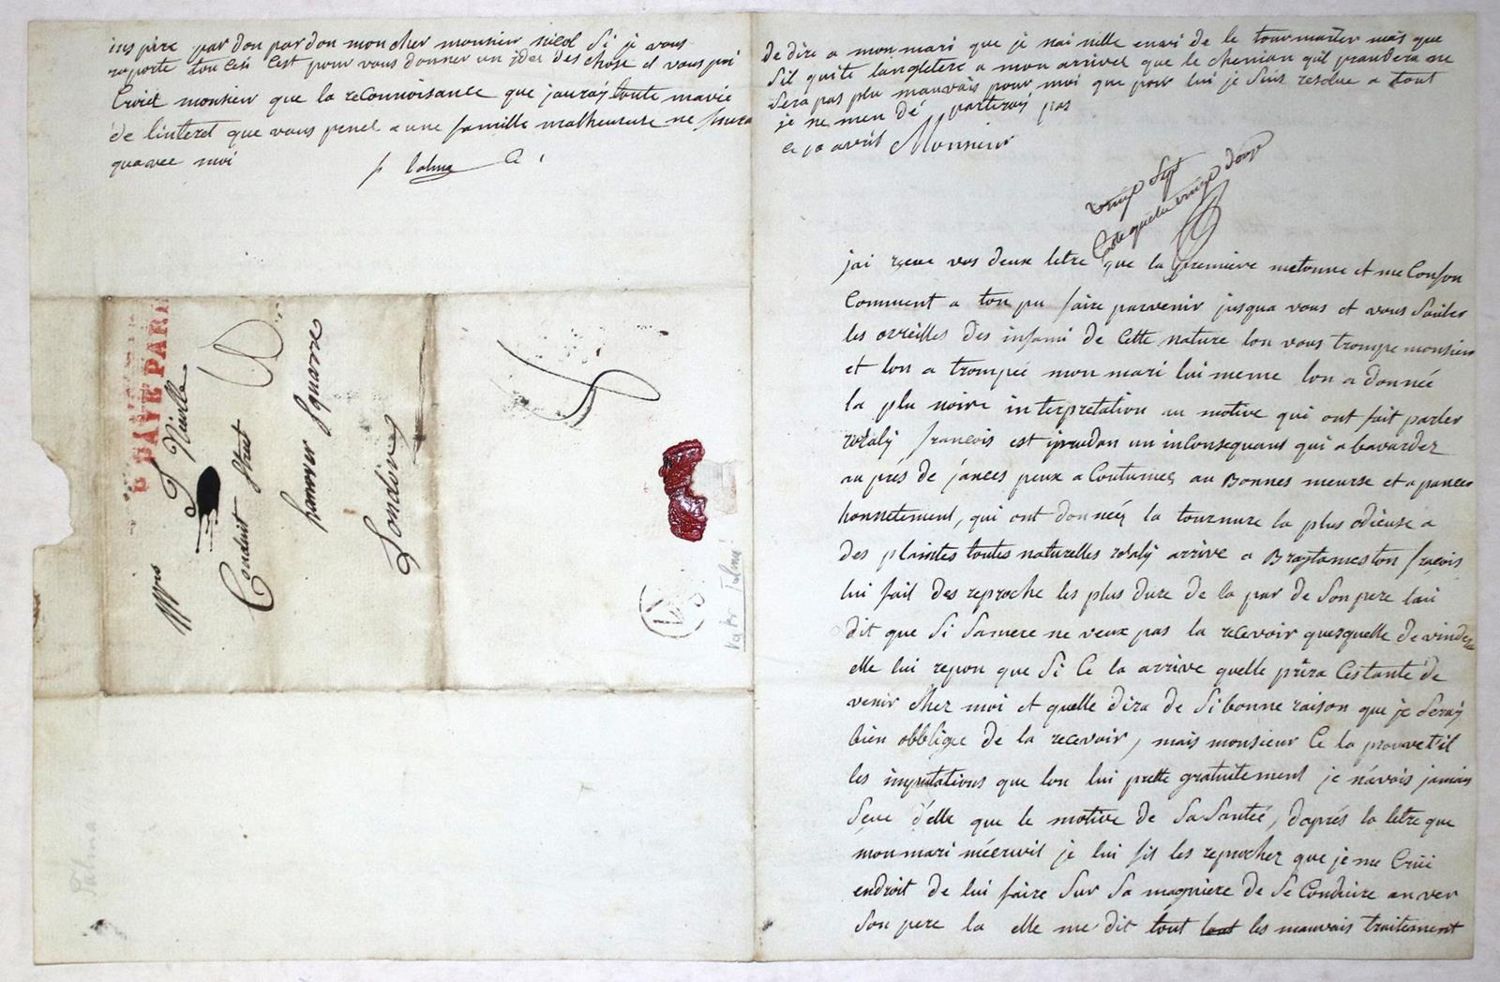 inspire pardon pardon mon cher monsieur nicol Si je vous
raporte tou cesi cest pour vous donner un idee des chose et vous pri
Croiet monsieur que la reconnoisance que jauray toute mavie
de linteret que vous penet a une famille malheureuse ne
quavec moi
p talma
P PAYÉ PARI
Mrs T Nielle
Conduit Street
hanover Squarre
Londires
Talma
de dire a mon mari que je nai nille envi de le tourmanter mais que
Sil quite langletere a mon arrivet que le chemian quil prandera ne
Sera pas plu mauvais pour moi que pour lui je Suis resolue a tout
je ne men dé partiray pas
ce 30 avril Monsieur
vingt Sept
jai reçeue vos deux letre que la premiere metonne et me Confon
Comment a ton pu faire parvenir jusqua vous et vous Souiller
les orreilles des infami de Cette nature lon vous trompe monsieur
et lon a trompée mon mari lui meme lon a donnée
la plu noire interpretation au motive qui ont fait parler
rosaly francois est iprudan un inConsequans qui a bavardez
au près de jances peux a Coutumeé au Bonnes meurse et a pancer
honnetement, qui ont donnéé la tournure la plus odieuse a
des plaintes toutes naturelles rosaly arrive a fraçois
lui fait des reproche les plus dure de la par de Son pere lui
dit que Si Samere ne veux pas la recevoir quesquelle devindera
elle lui repon que Si Ce la arrive quelle prira Cestante de
venir chez moi et quelle dira de Si bonne raison que je Seray
bien obbligée de la recevoir, mais monsieur Ce la prouvet'il
les imputations que lon lui prette gratuitement je n'avois jamais
Seue d'elle que le motive de Sa Santée, d'aprés la letre que
mon mari mécrivit je lui fit les reprochez que je me Crüi
endroit de lui faire Sur Sa magniere de Se Conduire anver
Son pere la elle me dit tout tout les mauvais traitement